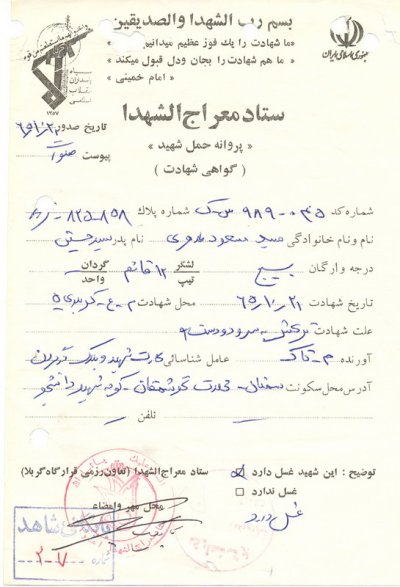 بسم رب الشهدا والصدیقین
«ما شهادت را یك فوز عظیم میدانیم»
« ما هم شهادت را بجان ودل قبول میکند »
« امام خمینی »
جمهوری اسلامی ایران
سپاه
پاسداران
انقلاب
اسلامی
۱۳۵۷
ستاد معراج الشهدا
« پروانه حمل شهید »
( گواهی شهادت )
تاریخ صدور
پیوست
شماره کد ۰۳۵-۹۸۹ شماره پلاك ۸۵۸-۸۲۵
نام ونام خانوادگی سید مسعود نام پدر سیدحسین
درجه وارگان بسیج لشگر تیپ ۱۲ قائم گردان واحد
تاریخ شهادت ۶۵/۱۰/۲۱ محل شهادت م-ع-کربلای ۵
علت شهادت ترکش به سر و دوست
آورنده عامل شناسائی کارت شهید و پلاک گردن
آدرس محل سکونت سمنان - کوچه شهید دانشجو
تلفن
توضیح : این شهید غسل دارد ☑
غسل ندارد □
غسل دارد
ستاد معراج الشهدا (تعاون رزمی قرارگاه کربلا)
محل مهر وامضاء
بایگانی شاهد
شماره ۲۰۷